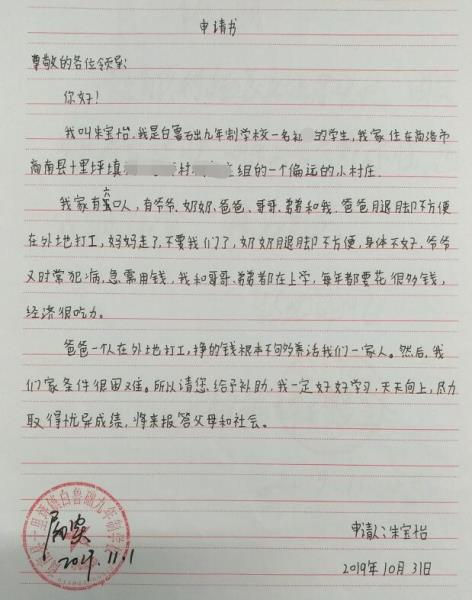 申请书
尊敬的各位领导:
你好!
我叫朱宝怡,我是白鲁础九年制学校一名的学生,我家住在商洛市
商南县十里坪填村组的一个偏远的小村庄。
我家有六口人,有爷爷、奶奶、爸爸、哥哥、弟弟和我。爸爸腿脚不方便
在外地打工,妈妈走了,不要我们了,奶奶腿脚不方便,身体不好,爷爷
又时常犯病,急需用钱,我和哥哥、弟弟都在上学,每年都要花很多钱,
经济很吃力。
爸爸一个人在外地打工,挣的钱根本不够养活我们一家人。然后,我
们家条件很困难。所以请您给予补助,我一定好好学习,天天向上,尽力
取得优异成绩,将来报答父母和社会。
十里坪镇白鲁础九年制学校
属实
2019.11.1
申请人:朱宝怡
2019年10月31日